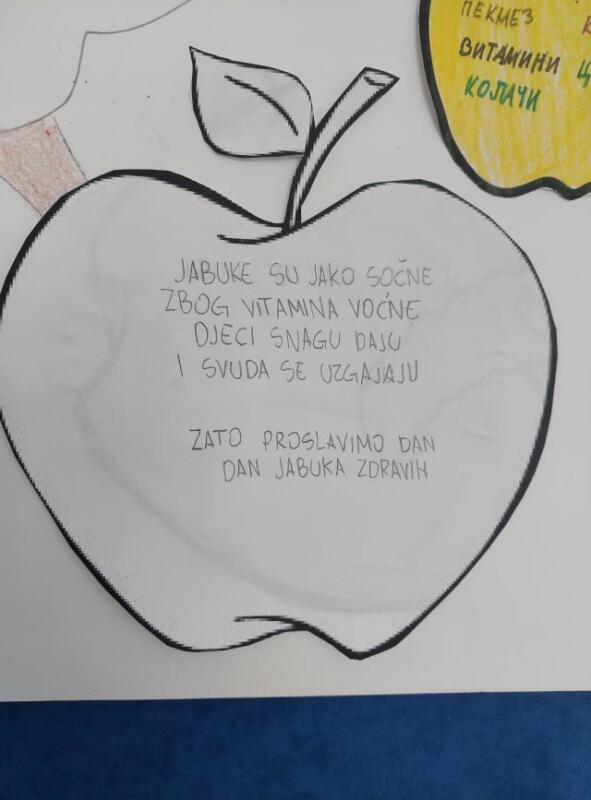 ПЕКМЕЗ
ВИТАМИНИ
КОЛАЧИ
JABUKE SU JAKO SOČNE
ZBOG VITAMINA VOĆNE
DJECI SNAGU DAJU
I SVUDA SE UZGAJAJU
ZATO PROSLAVIMO DAN
DAN JABUKA ZDRAVIH